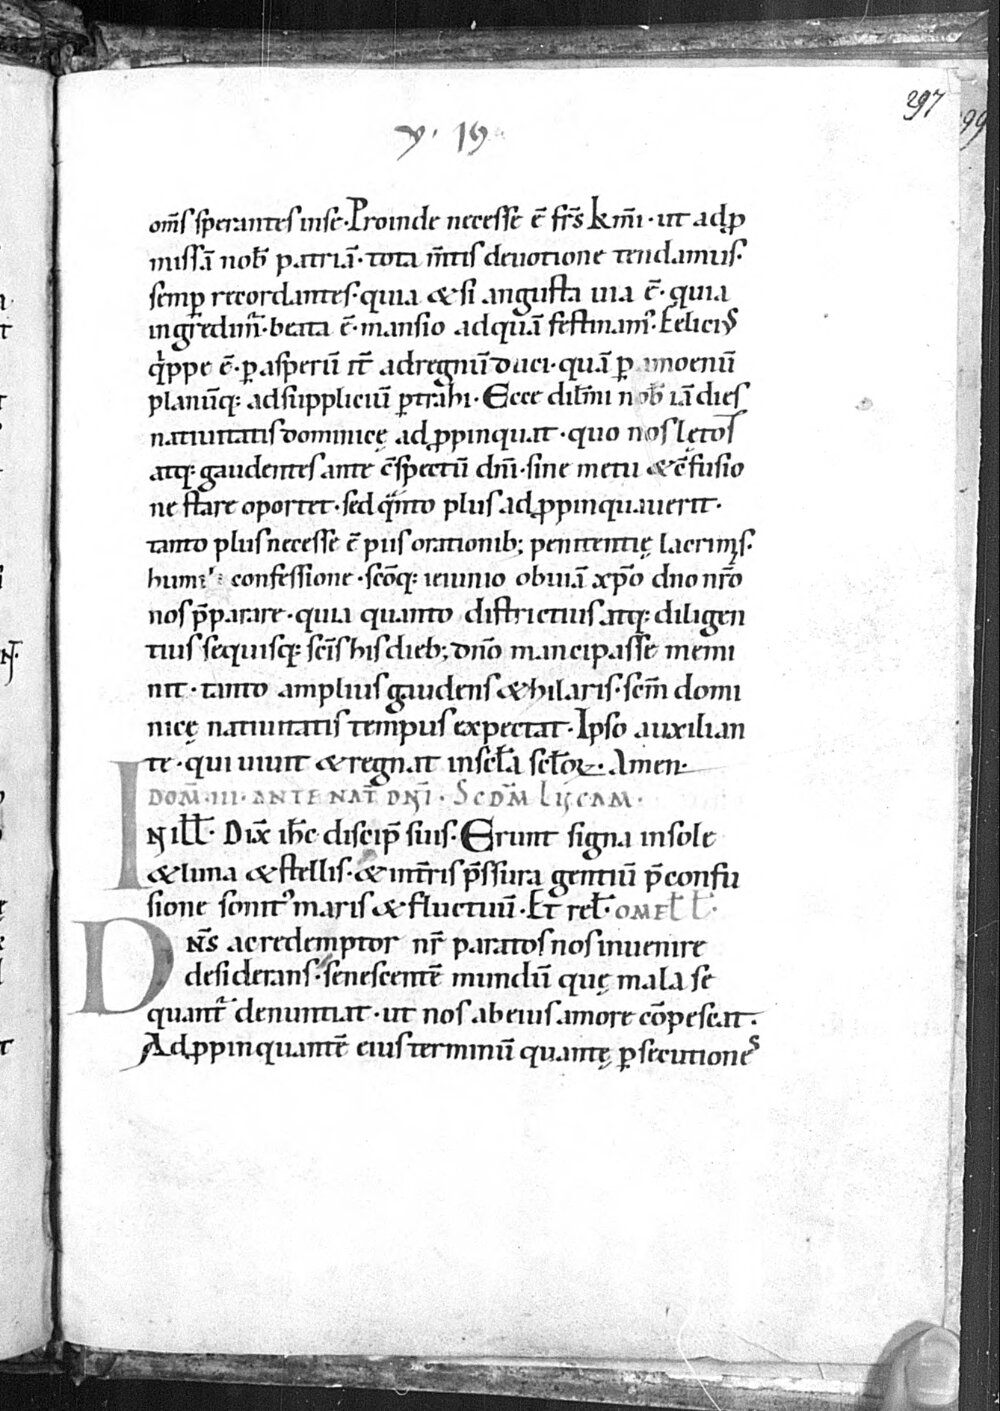 297
99
y. 19
om̄s sperantes in se. Proinde necesse ē fr̄s km̄i. ut ad ꝓ
missā nob̄ patriā. tota m̄tis deuotione tendamus.
semp̄ recordantes. quia & si angusta uia ē. quia
ingredim̄. beata ē. mansio ad quā festinam᷒. Feliciꝰ
q̓ppe ē. ꝑ asperū it̄ ad regnū duci. quā ꝑ amoenū
planūq: ad suppliciū ꝑtrahi. Ecce dil̄mi nob̄ iā dies
natiuitatis dominicę adꝓpinquat. quo nos lętos
atq: gaudentes ante c̄spectū dn̄i. sine metu & c̄fusio
ne stare oportet. sed q̄nto plus adꝓpinquauerit.
tanto plus necesse ē piis orationib; penitentię lacrimis.
confessione. sc̄oq: ieiunio obuiā xp̄o dno nr̄o
nos p̄parare. quia quanto districtius atq: diligen
tius se quisq: sc̄is his dieb; dn̄o mancipasse memi
nit. tanto amplius gaudens & hilaris. sc̄m domi
nicę natiuitatis tempus expectat. Ipso auxilian
te. qui uiuit & regnat in sc̄la sc̄loꝝ. Amen.
DOM̄. III. ANTE NAT̄ DN̄I. SCDM̄ LUCAM.
IN ILL̄. Dix̄ ih̄c discip̄ suis. Erunt signa in sole
& luna & stellis. & int̄ris p̄ssura gentiū p̄ confu
sione sonitꝰ maris & fluctuū. Et rel̄. OMEL̄
DN̄S ac redemptor nr̄ paratos nos inuenire
desiderans. senescentē mundū quę mala se
quant̄ denuntiat. ut nos ab eius amore cōpescat.
Adꝓpinquantē eius terminū quantę ꝑsecutiones